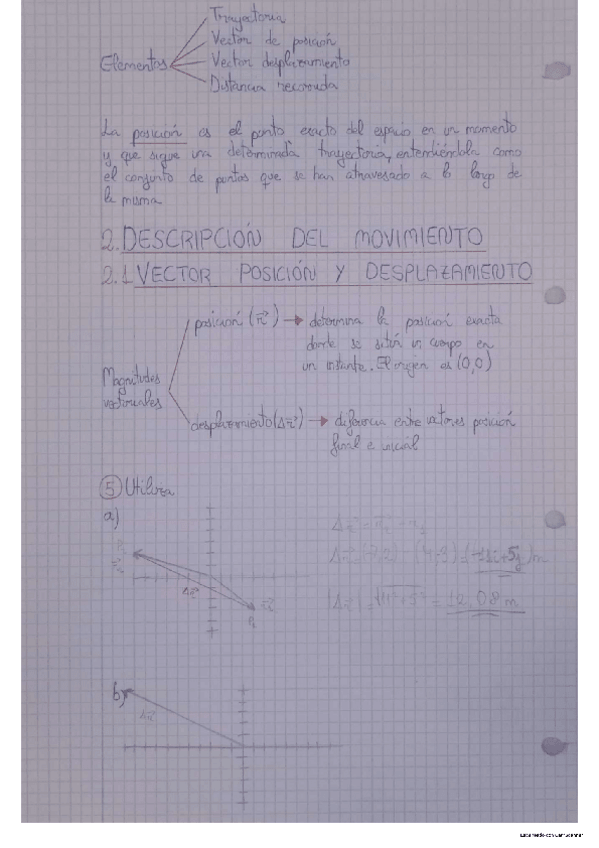 Trayectoria
Vector de posición
Elementos
Vector desplazamiento
Distancia recorrida
La posición es el punto exacto del espacio en un momento
y que sigue una determinada trayectoria, entendiéndola como
el conjunto de puntos que se han atravesado a lo largo de
la misma
2. DESCRIPCIÓN DEL MOVIMIENTO
2.1 VECTOR POSICIÓN Y DESPLAZAMIENTO
posición (r⃗) → determina la posición exacta
donde se sitúa un cuerpo en
un instante. El origen es (0,0)
Magnitudes
vectoriales
desplazamiento (Δr⃗) → diferencia entre vectores posición
final e inicial
5 Utiliza
a)
Δr⃗
b)
Δr⃗